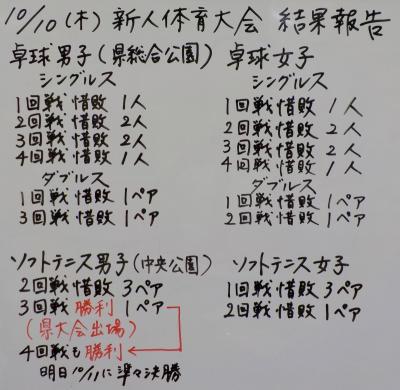 10/10(木) 新人体育大会 結果報告
卓球男子(県総合公園)
シングルス
1回戦 惜敗 1人
2回戦 惜敗 2人
3回戦 惜敗 2人
4回戦 惜敗 1人
ダブルス
1回戦 惜敗 1ペア
3回戦 惜敗 1ペア
卓球女子
シングルス
1回戦 惜敗 1人
2回戦 惜敗 2人
3回戦 惜敗 2人
4回戦 惜敗 1人
ダブルス
1回戦 惜敗 1ペア
2回戦 惜敗 1ペア
ソフトテニス男子(中央公園)
2回戦 惜敗 3ペア
3回戦 勝利 1ペア
(県大会出場)
4回戦も勝利
明日10/11に準々決勝
ソフトテニス女子
1回戦 惜敗 3ペア
2回戦 惜敗 1ペア